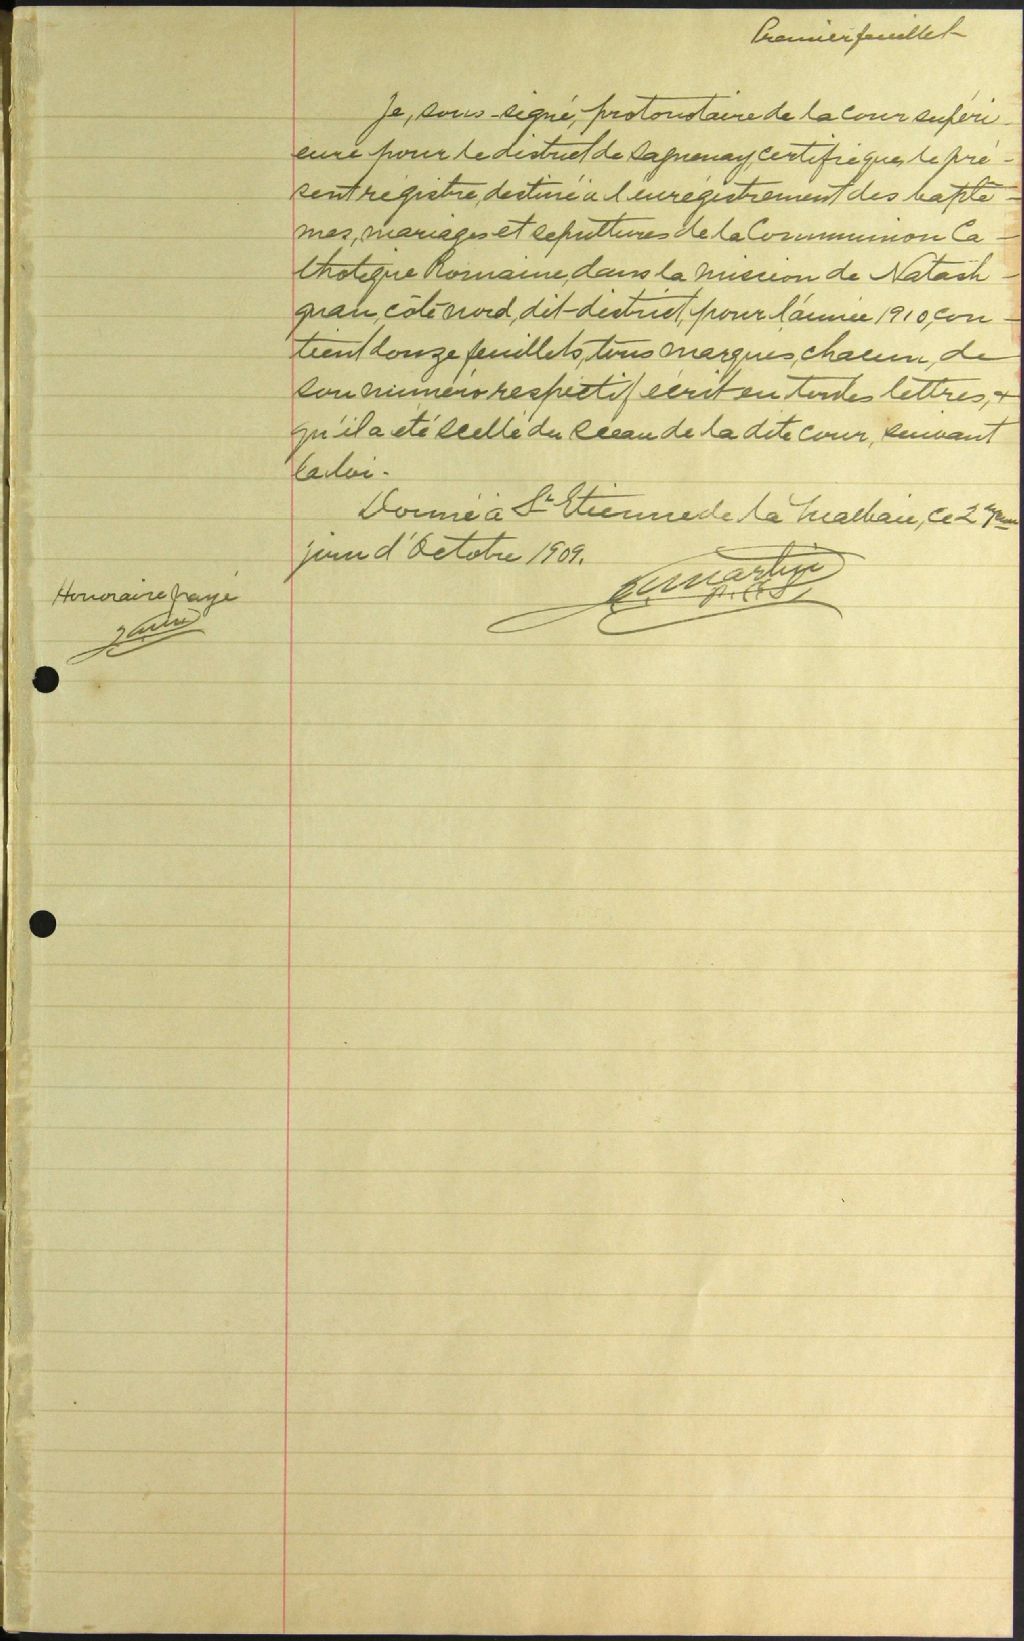 Premier feuillet
Je, sous-signé, protonotaire de la cour supéri-
eure pour le district de Saguenay, certifie que, le pré-
sent régistre, destiné à l'enrégistrement des baptê-
mes, mariages et sépultures de la Communion Ca-
tholique Romaine, dans la mission de Natash-
quan, côté nord, dit district, pour l'année 1910, con-
tient douze feuillets, tous marqués, chacun, de
son numéro respectif écrit en toutes lettres, &
qu'il a été scellé du sceau de la dite cour, suivant
la loi.
Donné à St Etienne de la Malbaie, ce 2
jour d'Octobre 1909.
Martin
Honoraire payé